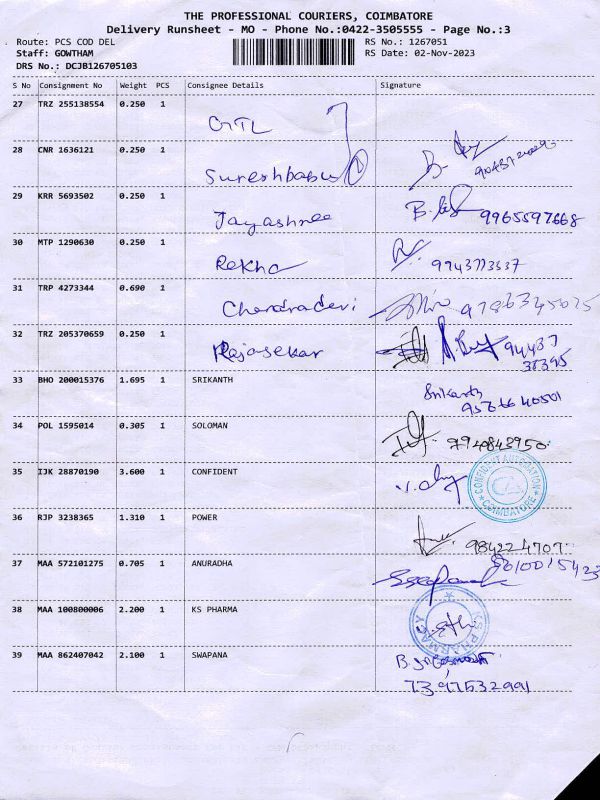 THE PROFESSIONAL COURIERS, COIMBATORE
Delivery Runsheet - MO - Phone No.:0422-3505555 - Page No.:3
Route: PCS COD DEL RS No.: 1267051
Staff: GOWTHAM RS Date: 02-Nov-2023
DRS No.: DCJB126705103
S No Consignment No Weight PCS Consignee Details Signature
27 TRZ 255138554 0.250 1
GTL
28 CNR 1636121 0.250 1
Sureshbabu
29 KRR 5693502 0.250 1
Jayashree 9965597668
30 MTP 1290630 0.250 1
Rekha
31 TRP 4273344 0.690 1
Chandradevi
32 TRZ 205370659 0.250 1
Rajasekar 94437
33 BHO 200015376 1.695 1 SRIKANTH
Srikanth
34 POL 1595014 0.305 1 SOLOMAN
9940843950
35 IJK 28870190 3.600 1 CONFIDENT
CONFIDENT AUTOMATION COIMBATORE
36 RJP 3238365 1.310 1 POWER
37 MAA 572101275 0.705 1 ANURADHA
38 MAA 100800006 2.200 1 KS PHARMA
KS PHARMACY
39 MAA 862407042 2.100 1 SWAPANA
7397532991